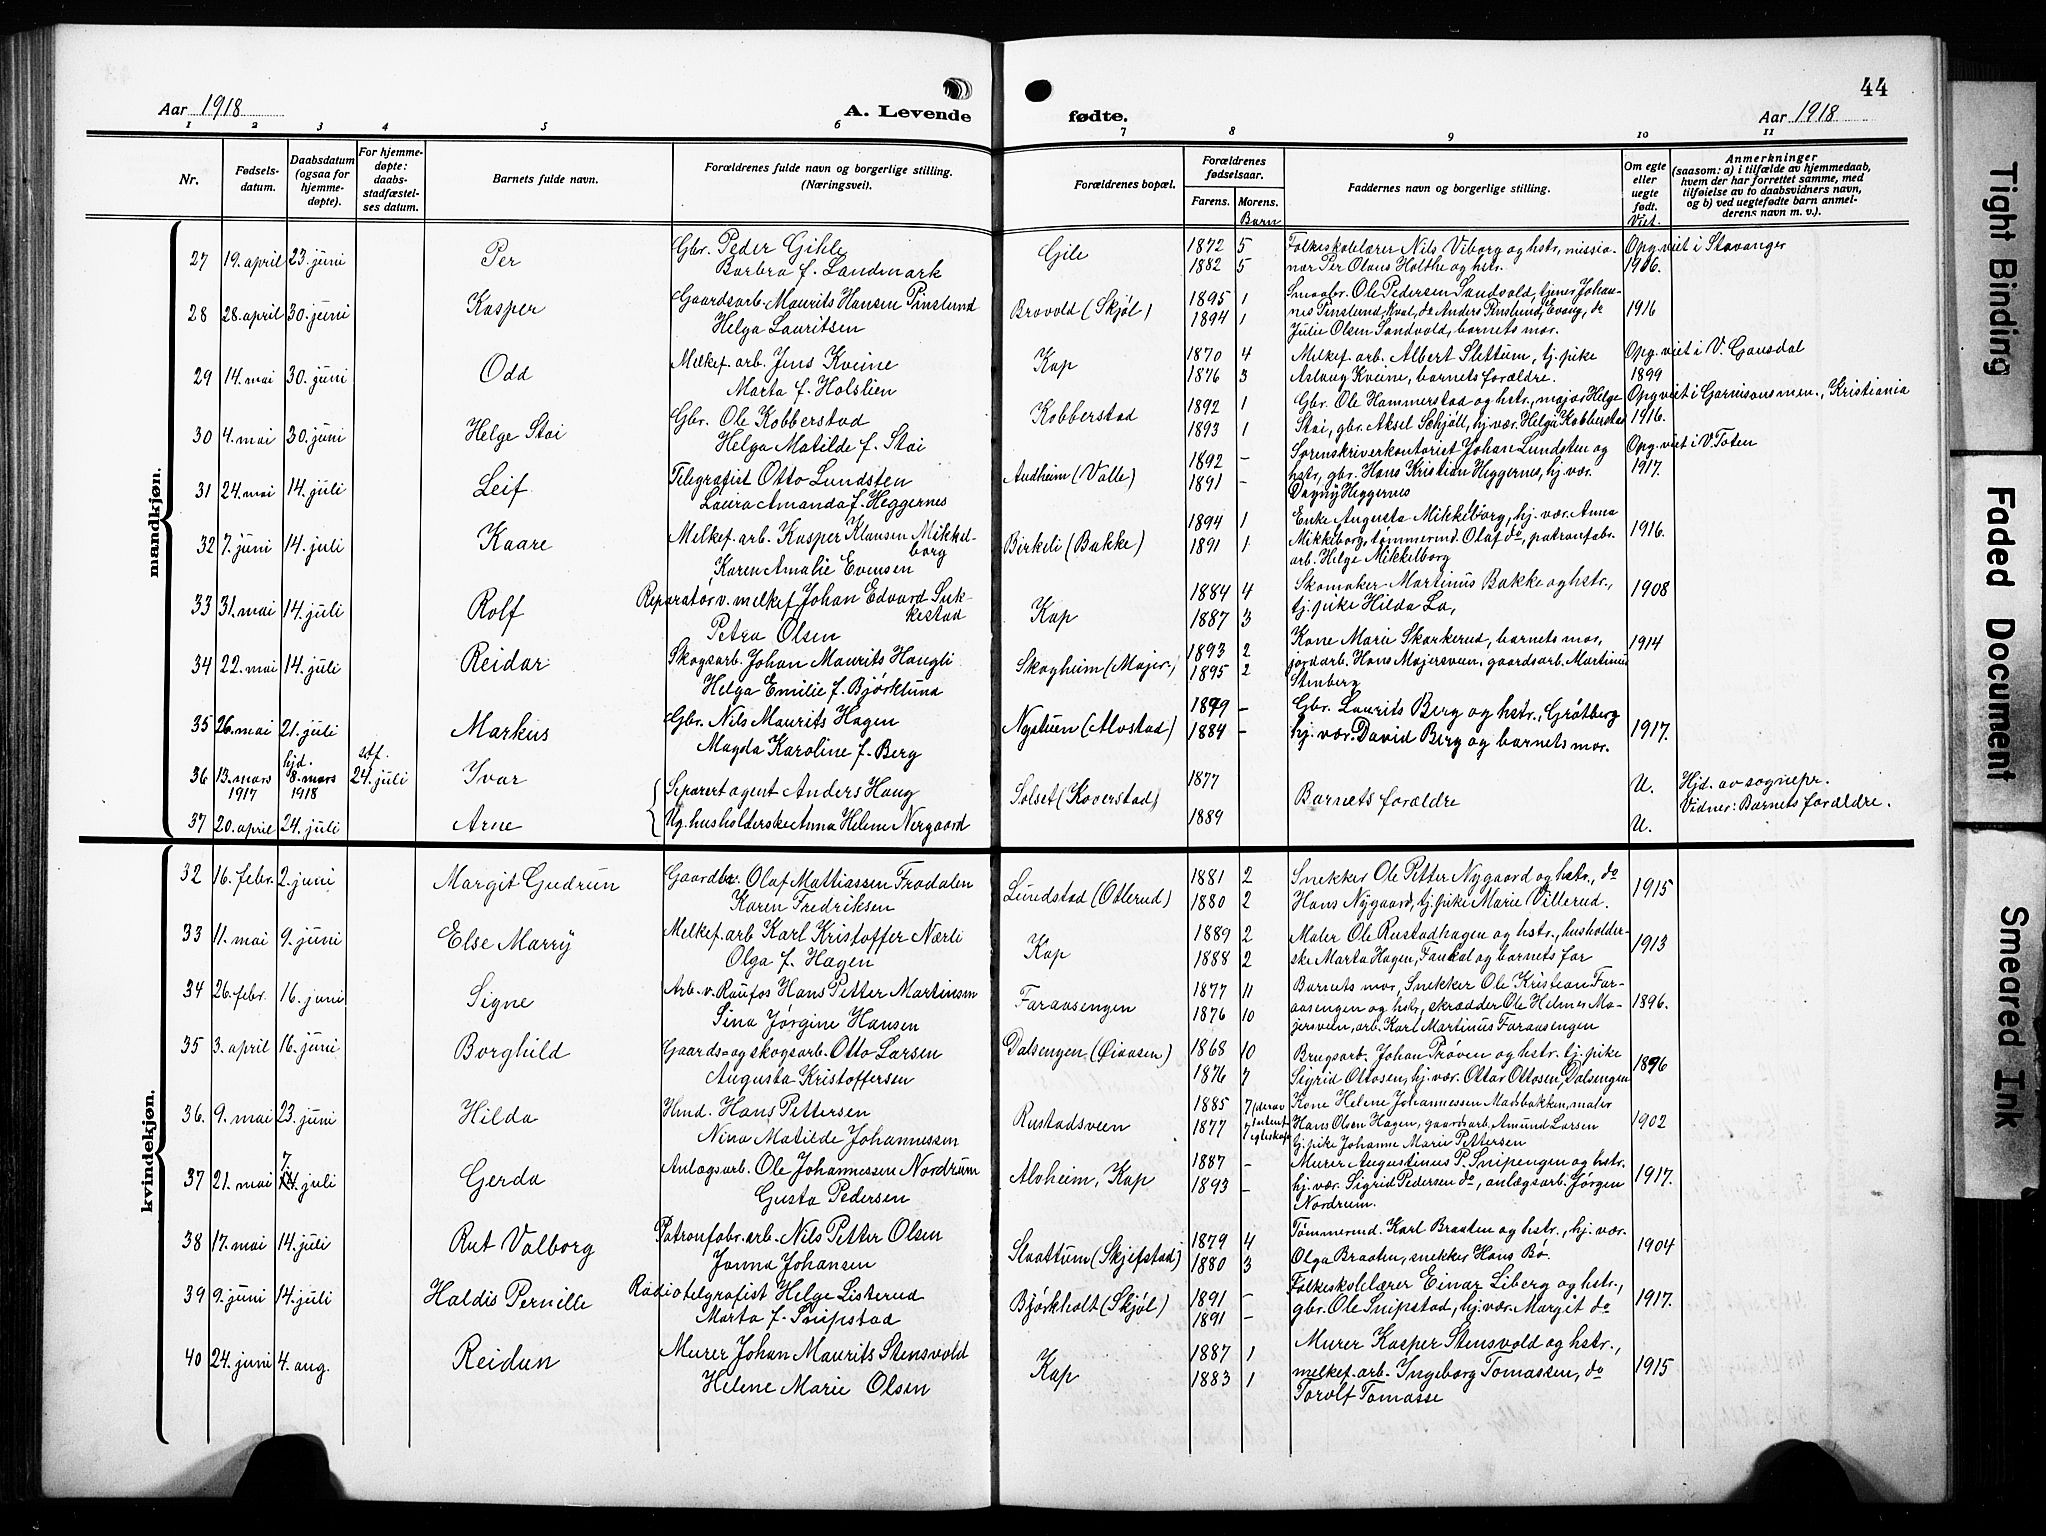 44
Aar 1918
A. Levende
fødte.
Aar 1918
1 2 3 4 5 6 7 8 9 10 11
Nr.
Fødsels-
datum.
Daabsdatum
(ogsaa for
hjemme-
døpte).
For hjemme-
døpte:
daabs-
stadfæstel-
ses datum.
Barnets fulde navn.
Forældrenes fulde navn og borgerlige stilling.
(Næringsvei).
Forældrenes bopæl.
Forældrenes
fødselsaar.
Farens. Morens.
Barn
Faddernes navn og borgerlige stilling.
Om egte
eller
uegte
født.
Viet.
Anmerkninger
(saasom: a) i tilfælde av hjemmedaab,
hvem der har forrettet samme, med
tilføielse av to daabsvidners navn,
og b) ved uegtefødte barn anmel-
derens navn m. v.).
mandkjøn.
27 19. april 23. juni Per Gbr. Peder Gihle Gile 1872 5 Folkeskolelærer Nils Viborg og hstr, missio- Opg. viet i Stavanger
Barbra f. Landmark 1882 5 nær Per Olaus Holthe og hstr. 1906.
28 28. april 30. juni Kasper Gaardsarb. Maurits Hansen Pinslund Brovold (Skjøl) 1895 1 Smaabr. Ole Pedersen Sandvold, tjener Johan- 1916
Helga Lauritsen 1894 1 nes Pinslund, Kval, do Anders Pinslund, Evang, do
Julie Olsen Sandvold, barnets mor.
29 14. mai 30. juni Odd Melkef. arb. Jens Kveine Kap 1870 4 Melkef. arb. Albert Slettum, tj. pike Opg. viet i V. Gausdal
Marta f. Holslien 1876 3 Aslaug Kveine, barnets forældre. 1899
30 4. mai 30. juni Helge Stai Gbr. Ole Kobberstad Kobberstad 1892 1 Gbr. Ole Hammerstad og hstr, major Helge Opg viet i Garnisonsmen., Kristiania
Helga Matilde f. Stai 1893 1 Stai, gbr. Aksel Schjöll, hj. vær. Helga Kobberstad 1916.
31 24. mai 14. juli Leif Telegrafist Otto Lundsten Audheim (Valle) 1892 - Sorenskriverkontorist Johan Lundsten og Opg. viet i V. Toten
Laura Amanda f. Heggernes 1891 - hstr, gbr. Hans Kristian Heggernes, hj. vær. 1917.
Dagny Heggernes
32 7. juni 14. juli Kaare Melkef. arb. Kasper Klausen Mikkel- Birkeli (Bakke) 1894 1 Enke Augusta Mikkelborg, hj. vær. Anna 1916.
borg 1891 1 Mikkelborg, tømmermd. Olaf do, patronfabr.
Karen Amalie Evensen arb. Helge Mikkelborg
33 31. mai 14. juli Rolf Reparatør v. melkef. Johan Edvard Suk- Kap 1884 4 Skomaker Martinus Bakke og hstr., 1908
kestad 1887 3 tj. pike Hilda Lo,
Petra Olsen
34 22. mai 14. juli Reidar Skogsarb. Johan Maurits Haugli Skogheim (Majer.) 1893 2 Kone Marie Skarkerud, barnets mor, 1914
Helga Emilie f. Bjørklund 1895 2 jordarb. Hans Majersveen, gaardsarb. Martinus
Stenberg
35 26. mai 21. juli Markus Gbr. Nils Maurits Hagen Nystuen (Alvstad) 1879 - Gbr. Laurits Berg og hstr., Grøtberg 1917.
Magda Karoline f. Berg 1884 - hj. vær. David Berg og barnets mor.
36 13. mars 1917 hjd. 8. mars 1918 stf. 24. juli Ivar Separert agent Anders Haug Solset (Koverstad) 1877 Barnets forældre U. Hjd. av sognepr.
Vidner: Barnets forældre.
37 20. april 24. juli Arne Ug. husholderske Anna Helene Nergaard 1889 U.
kvindekjøn.
32 16. febr. 2. juni Margit Gudrun Gaardbr. Olaf Mattiassen Frodalen Lundstad (Otterud) 1881 2 Snekker Ole Petter Nygaard og hstr., do 1915
Karen Fredriksen 1880 2 Hans Nygaard, tj. pike Marie Villerud.
33 11. mai 9. juni Else Marry Melkef. arb Karl Kristoffer Nærli Kap 1889 2 Maler Ole Rustadhagen og hstr., husholder- 1913
Olga f. Hagen 1888 2 ske Marta Hagen, Faukal og barnets far
34 26. febr. 16. juni Signe Arb. v. Raufos Hans Petter Martinsen Faraasengen 1877 11 Barnets mor, Snekker Ole Kristian Far- 1896.
Sina Jørgine Hansen 1876 10 aasengen og hstr, skrædder Ole Helmer Ma-
jersveen, arb. Karl Martinus Faraasengen
35 3. april 16. juni Borghild Gaards- og skogsarb. Otto Larsen Dalsengen (Øiaasen) 1868 10 Brugsarb. Johan Prøven og hstr. tj. pike 1896
Augusta Kristoffersen 1876 7 Sigrid Ottosen, hj. vær. Ottar Ottosen, Dalsengen
36. 9. mai 23. juni Hilda Hmd. Hans Pettersen Rustadsveen 1885 7 (derav Kone Helene Johannessen Madsbakken, maler 1902
Nina Matilde Johannessen 1877 7 Hans Olsen Hagen, gaardsarb. Amund Larsen
tj. pike Johanne Marie Pettersen
37 21. mai 7. juli Gerda Anlægsarb. Ole Johannessen Nordrum Alvheim, Kap 1887 - Murer Augustinus P. Snipengen og hstr. 1917.
Gusta Pedersen 1893 - hj. vær. Sigrid Pedersen do, anlægsarb. Jørgen
Nordrum.
38 17. mai 14. juli Rut Valborg Patronfabr. arb. Nils Petter Olsen Slaattum (Skjefstad) 1879 4 Tømmermd. Karl Braaten og hstr., hj. vær. 1904
Janna Johansen 1880 3 Olga Braaten, snekker Hans Bø.
39 9. juni 14. juli Haldis Pernille Radiotelgrafist Helge Listerud Bjørkholt (Skjøl) 1891 - Folkeskolelærer Einar Liberg og hstr., 1917.
Marta f. Snipstad 1891 - gbr. Ole Snipstad, hj. vær. Margit do
40 24. juni 4. aug. Reidun Murer Johan Maurits Stensvold Kap 1887 1 Murer Kasper Stensvold og hstr., 1915
Helene Marie Olsen 1883 1 melkef. arb. Ingeborg Tomassen, do
Torolf Tomasse
Tight Binding
Faded Document
Smeared Ink